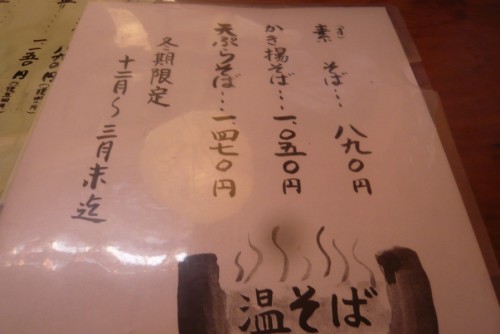 温そば
素(す)そば…八九〇円
かき揚そば…一、〇五〇円
天ぷらそば…一、四七〇円
冬期限定
十二月〜三月末迄